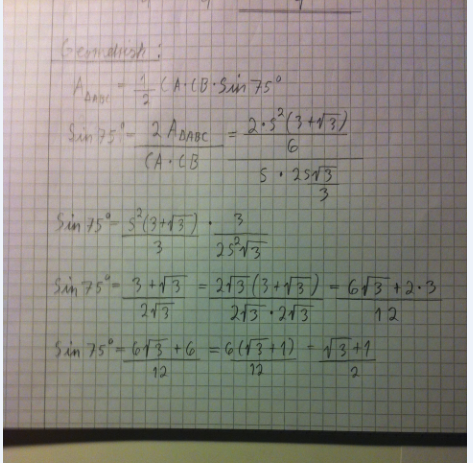 Geometrisk:
A_ΔABC = 1/2 CA · CB · Sin 75°
Sin 75° = 2 A_ΔABC / (CA · CB) = (2 · s²(3+√3) / 6) / (s · 2s√3 / 3)
Sin 75° = s²(3+√3) / 3 · 3 / (2s²√3)
Sin 75° = (3+√3) / (2√3) = 2√3(3+√3) / (2√3 · 2√3) = (6√3 + 2·3) / 12
Sin 75° = (6√3 + 6) / 12 = 6(√3+1) / 12 = (√3+1) / 2